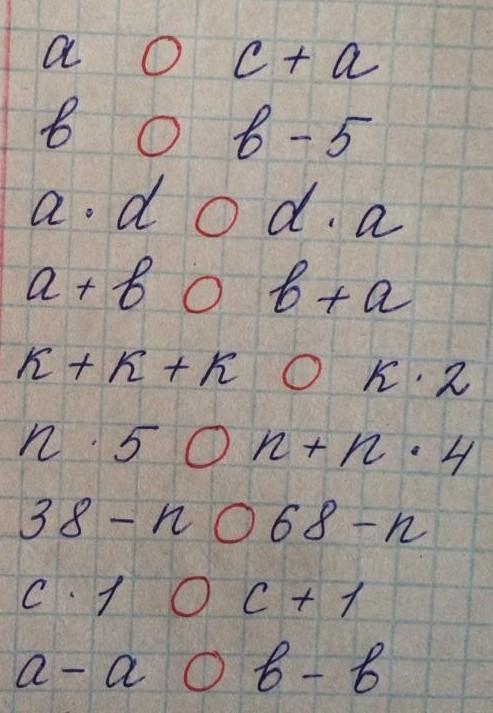 a ○ c + a
b ○ b - 5
a · d ○ d · a
a + b ○ b + a
к + к + к ○ к · 2
n · 5 ○ n + n · 4
38 - n ○ 68 - n
c · 1 ○ c + 1
a - a ○ b - b